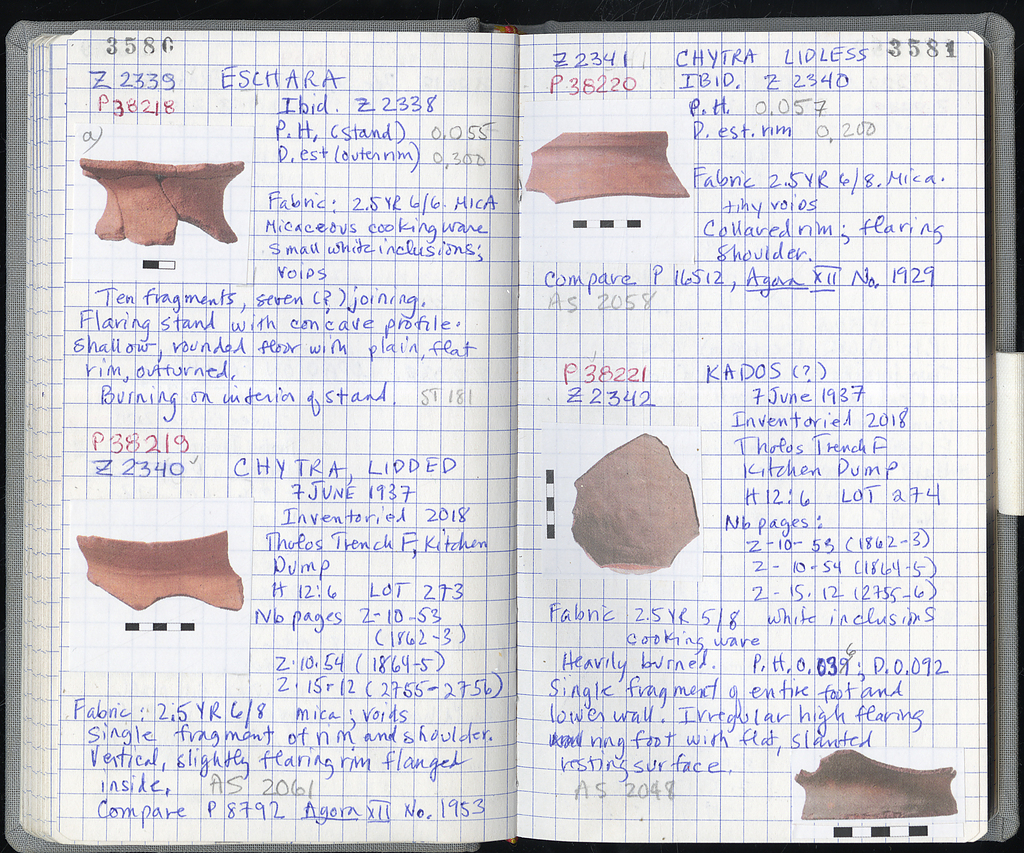 3580
Z 2339 ESCHARA
P38218 Ibid. Z 2338
a)
P.H. (stand) 0.055
D. est (outer rim) 0,300
Fabric: 2.5YR 6/6. MICA
Micaceous cooking ware
small white inclusions;
voids
Ten fragments, seven (?) joining.
Flaring stand with concave profile.
Shallow, rounded floor with plain, flat
rim, outturned.
Burning on interior of stand. ST 181
P38219
Z 2340 CHYTRA, LIDDED
7 JUNE 1937
Inventoried 2018
Tholos Trench F, Kitchen
Dump
H 12:6 LOT 273
Nb pages Z-10-53
(1862-3)
Z-10-54 (1864-5)
Z-15-12 (2755-2756)
Fabric: 2.5 YR 6/8 mica; voids
Single fragment of rim and shoulder.
Vertical, slightly flaring rim flanged
inside. AS 2061
Compare P 8792 Agora XII No. 1953
3581
Z 2341 CHYTRA LIDLESS
P38220 IBID. Z 2340
P.H. 0.057
D. est. rim 0,200
Fabric 2.5YR 6/8. Mica.
tiny voids
Collared rim; flaring
shoulder.
Compare P 16512, Agora XII No. 1929
AS 2058
P 38221 KADOS (?)
Z 2342 7 June 1937
Inventoried 2018
Tholos Trench F
Kitchen Dump
H 12:6 LOT 274
Nb pages:
Z-10-53 (1862-3)
Z-10-54 (1864-5)
Z-15-12 (2755-6)
Fabric 2.5 YR 5/8 white inclusions
cooking ware
Heavily burned. P.H. 0.039; D. 0.092
Single fragment of entire foot and
lower wall. Irregular high flaring
ring foot with flat, slanted
resting surface.
AS 2048